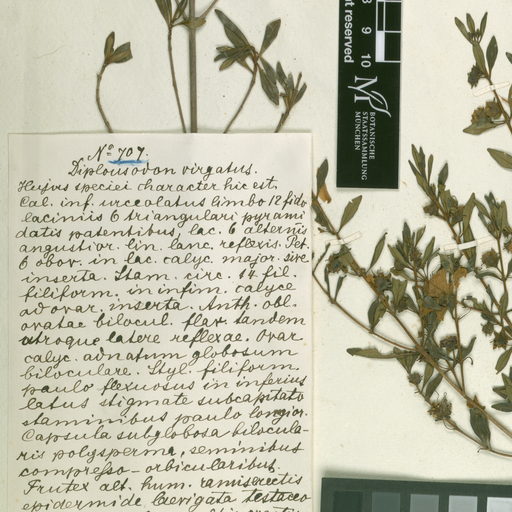 Nº 707.
Diplousodon virgatus.
Hujus speciei character hic est.
Cal. inf. urceolatus limbo 12 fido
laciniis 6 triangulari pyrami
datis patentibus lac. 6 alternis
angustior. lin. lanc. reflexis. Pet.
6 obov. in lac. calyc. major. sive
inserta. Stam. circ. 14 fil.
filiform. in infim. calyce
ad ovar. inserta. Anth. obl.
ovatae bilocul. flav. tandem
utroque latere reflexae. Ovar
calyc. adnatum globosum
biloculare. Styl. filiform.
paulo flexuosus in inferius
latus stigmate subcapitato
staminibus paulo longior.
Capsula subglobosa bilocula-
ris polysperma, seminibus
compresso-orbicularibus.
Frutex alt. hum. ramis rectis
epidermide laevigata testaceo
t reserved
8 9 10
BOTANISCHE
STAATSSAMMLUNG
MÜNCHEN